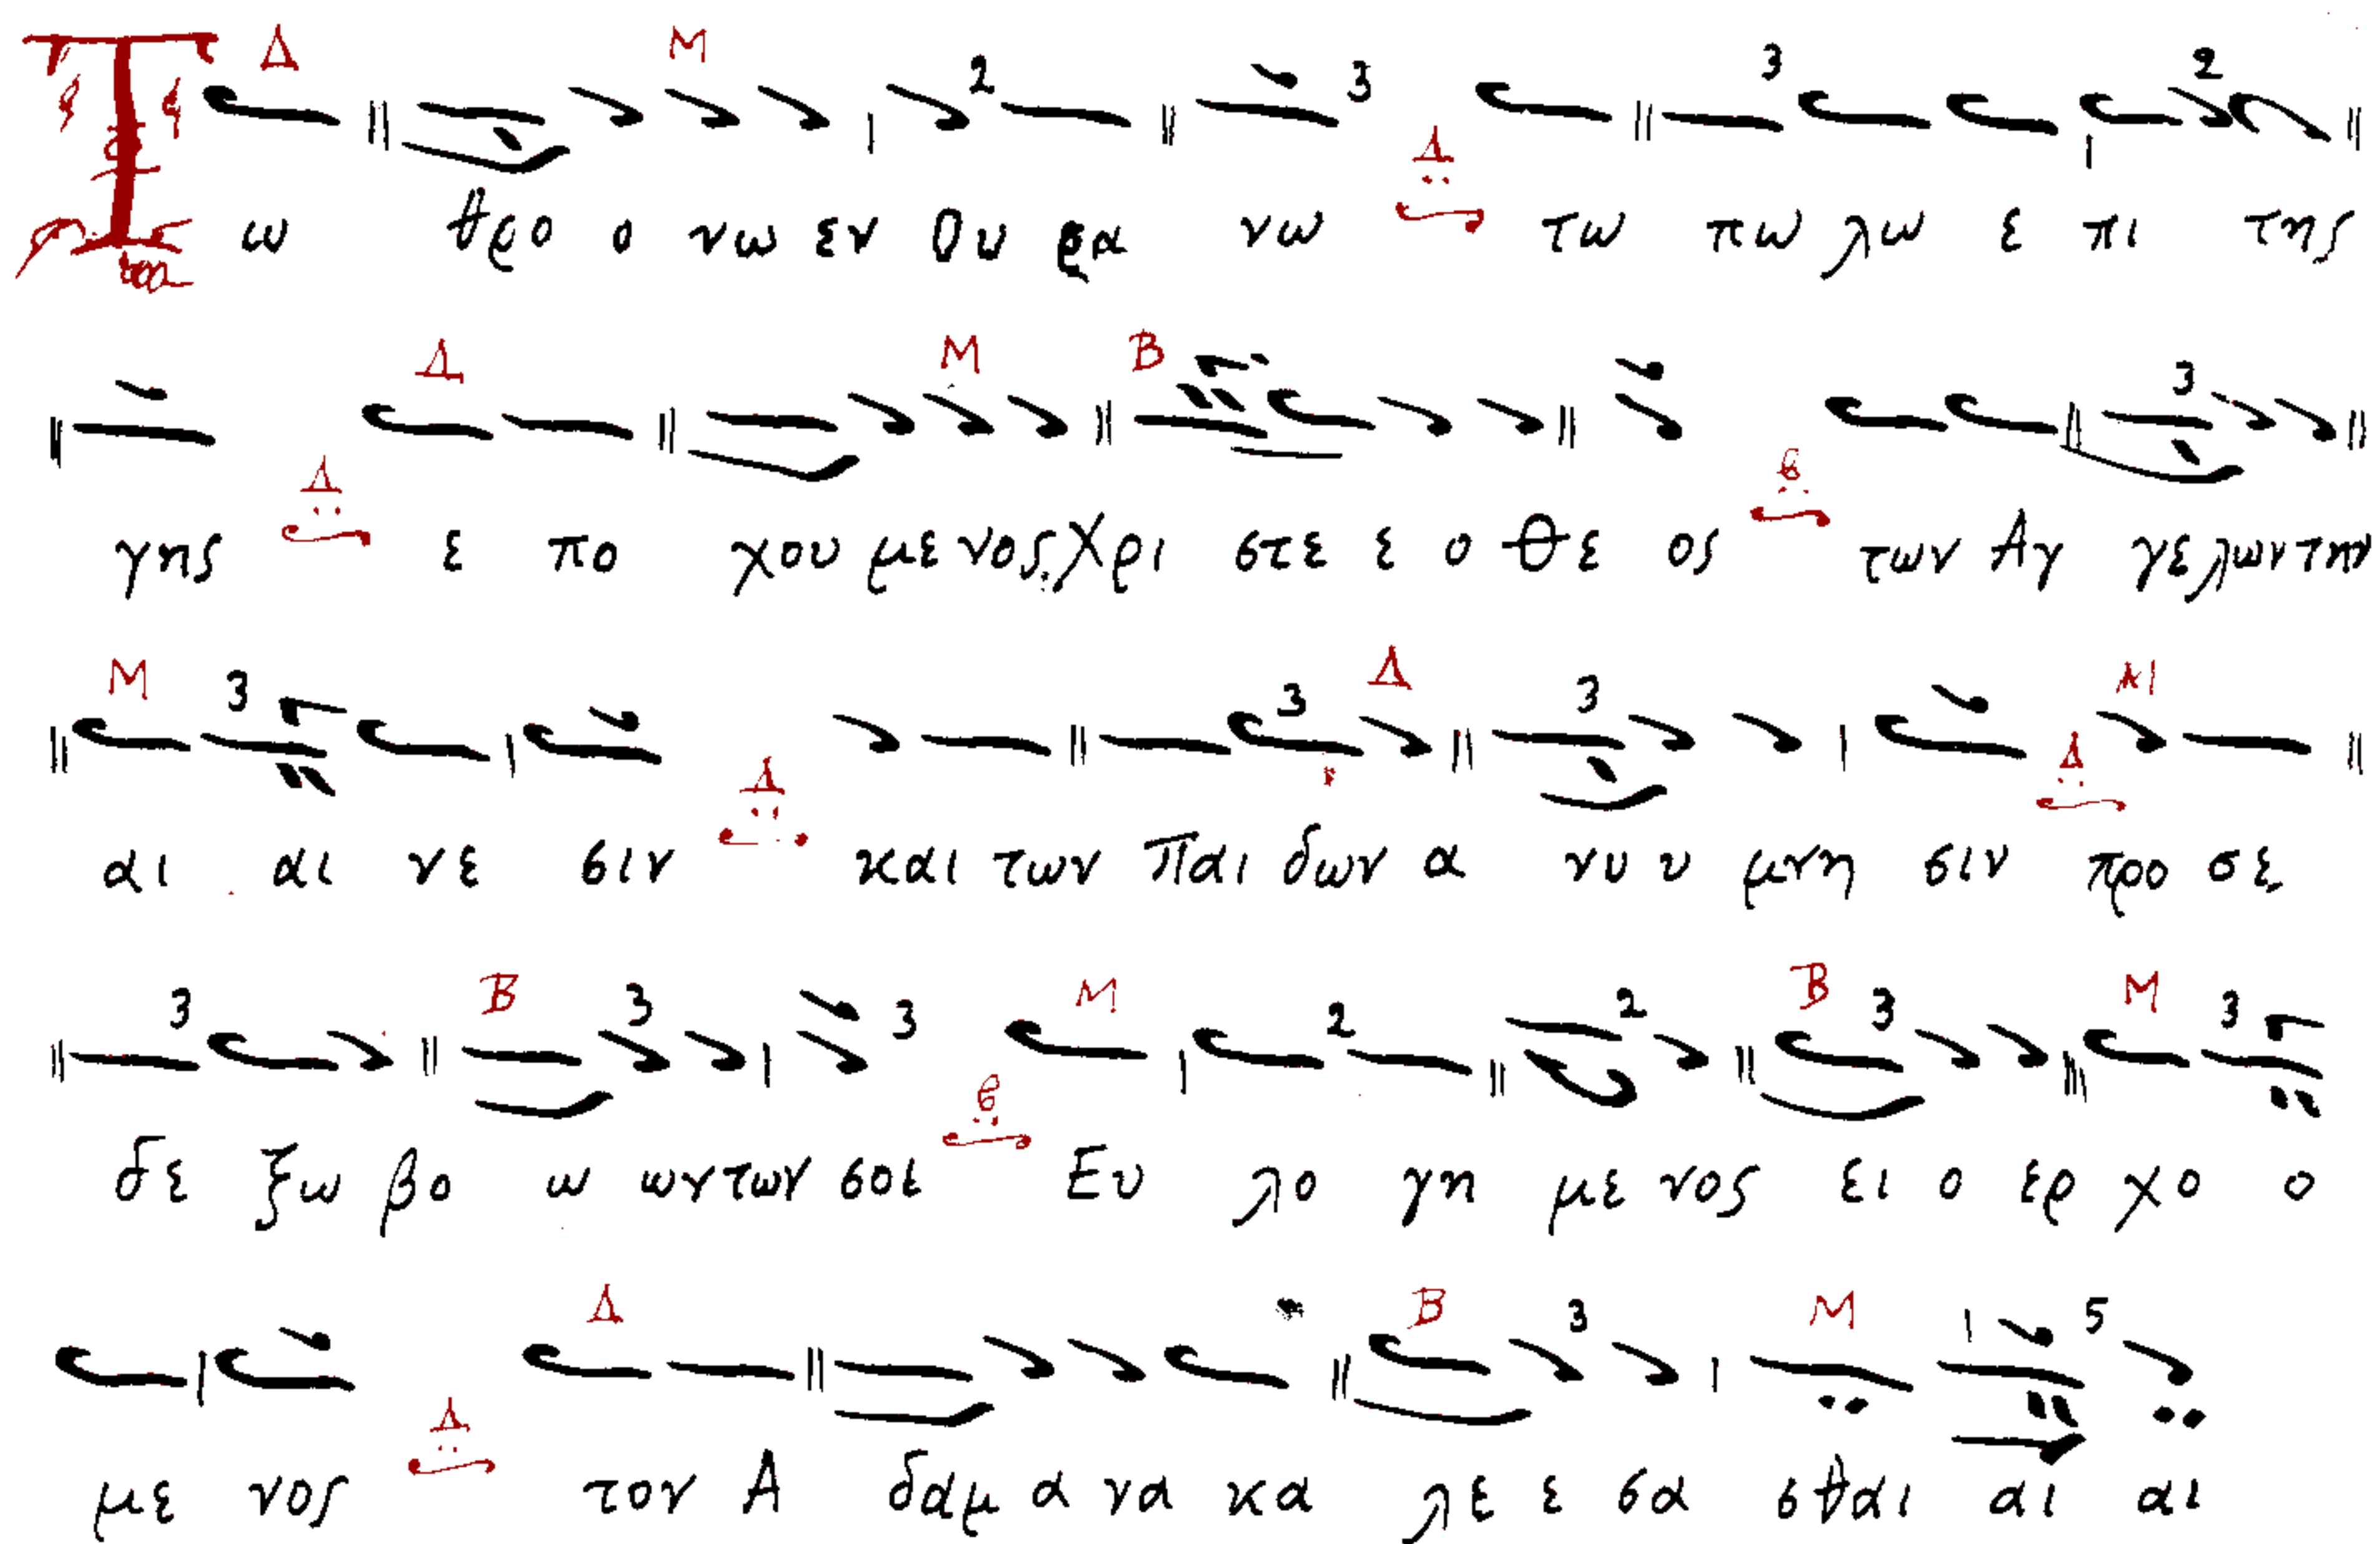 Δ Μ 2 3 3 2
Τ ω θρο ο νω εν Ου ρα νω Δ τω πω λω ε πι της
Δ Μ Β 3
γης Δ ε πο χου με νος Χρι στε ε ο Θε ος β των Αγ γε λων την
Μ 3 3 Δ 3 Μ
αι αι νε σιν Δ και των Παι δων α νυ υ μνη σιν Δ προ σε
3 Β 3 3 Μ 2 2 Β 3 Μ 3
δε ξω βο ω ων των σοι β Ευ λο γη με νος ει ο ερ χο ο
Δ Β 3 Μ 5
με νος Δ τον Α δαμ α να κα λε ε σα σθαι αι αι